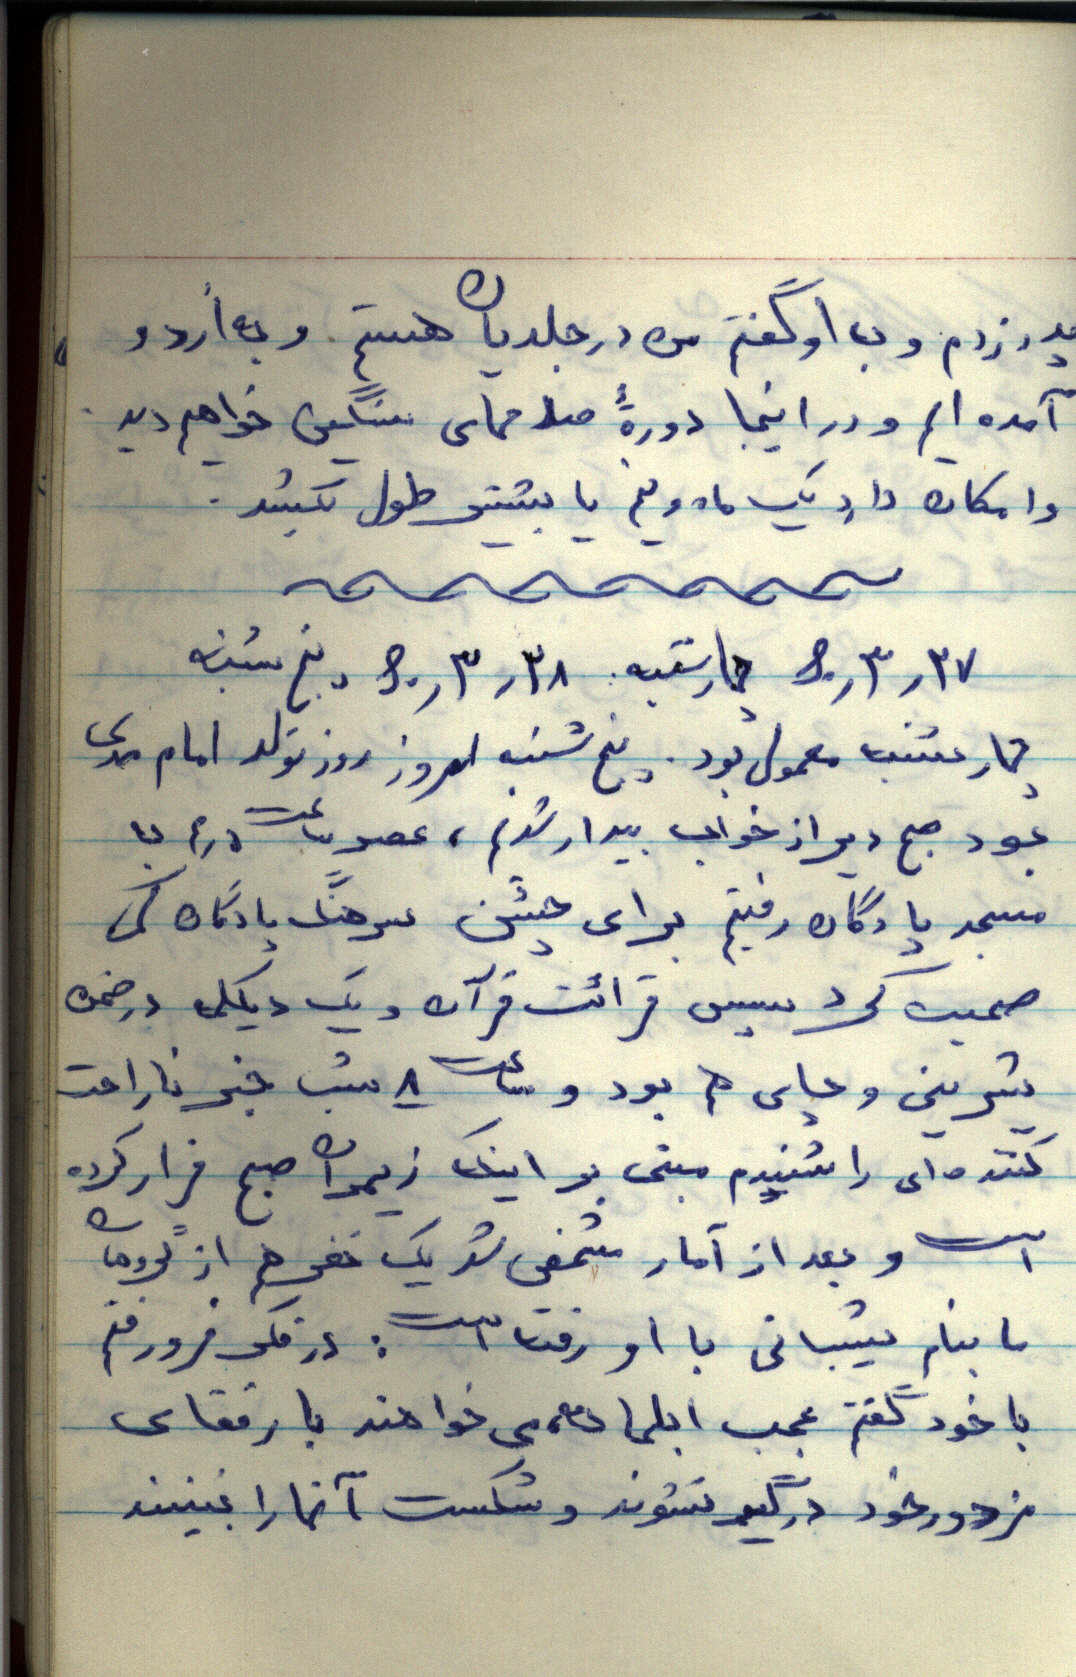 پدر زدم و به او گفتم من در جلدیان هستم و به اردو
آمده ایم و در اینجا دورهٔ سلاحهای سنگین خواهیم دید.
و امکان دارد یک ماه و نیم یا بیشتر طول بکشد.
۲۷ر۳ر۶۰ چهارشنبه. ۲۸ر۳ر۶۰ پنج شنبه
چهارشنبه معمولی بود. پنج شنبه امروز روز تولد امام مهدی
بود صبح دیر از خواب بیدار شدم، عصر ساعت به
مسجد پادگان رفتیم برای جشن سرهنگ پادگان کمی
صحبت کرد سپس قرائت قرآن و یک در ضمن
شیرینی و چای هم بود و ساعت ۸ شب خبر ناراحت
کننده ای را شنیدم مبنی بر اینکه صبح فرار کرده
است و بعد از آمار مشخص شد یک نفر هم از گروهان
ما بنام شیبانی با او رفته است. در فکر فرو رفتم
با خود گفتم عجب ابلها می خواهند با رفقای
مزدور خود درگیر نشوند و شکست آنها را نبینند